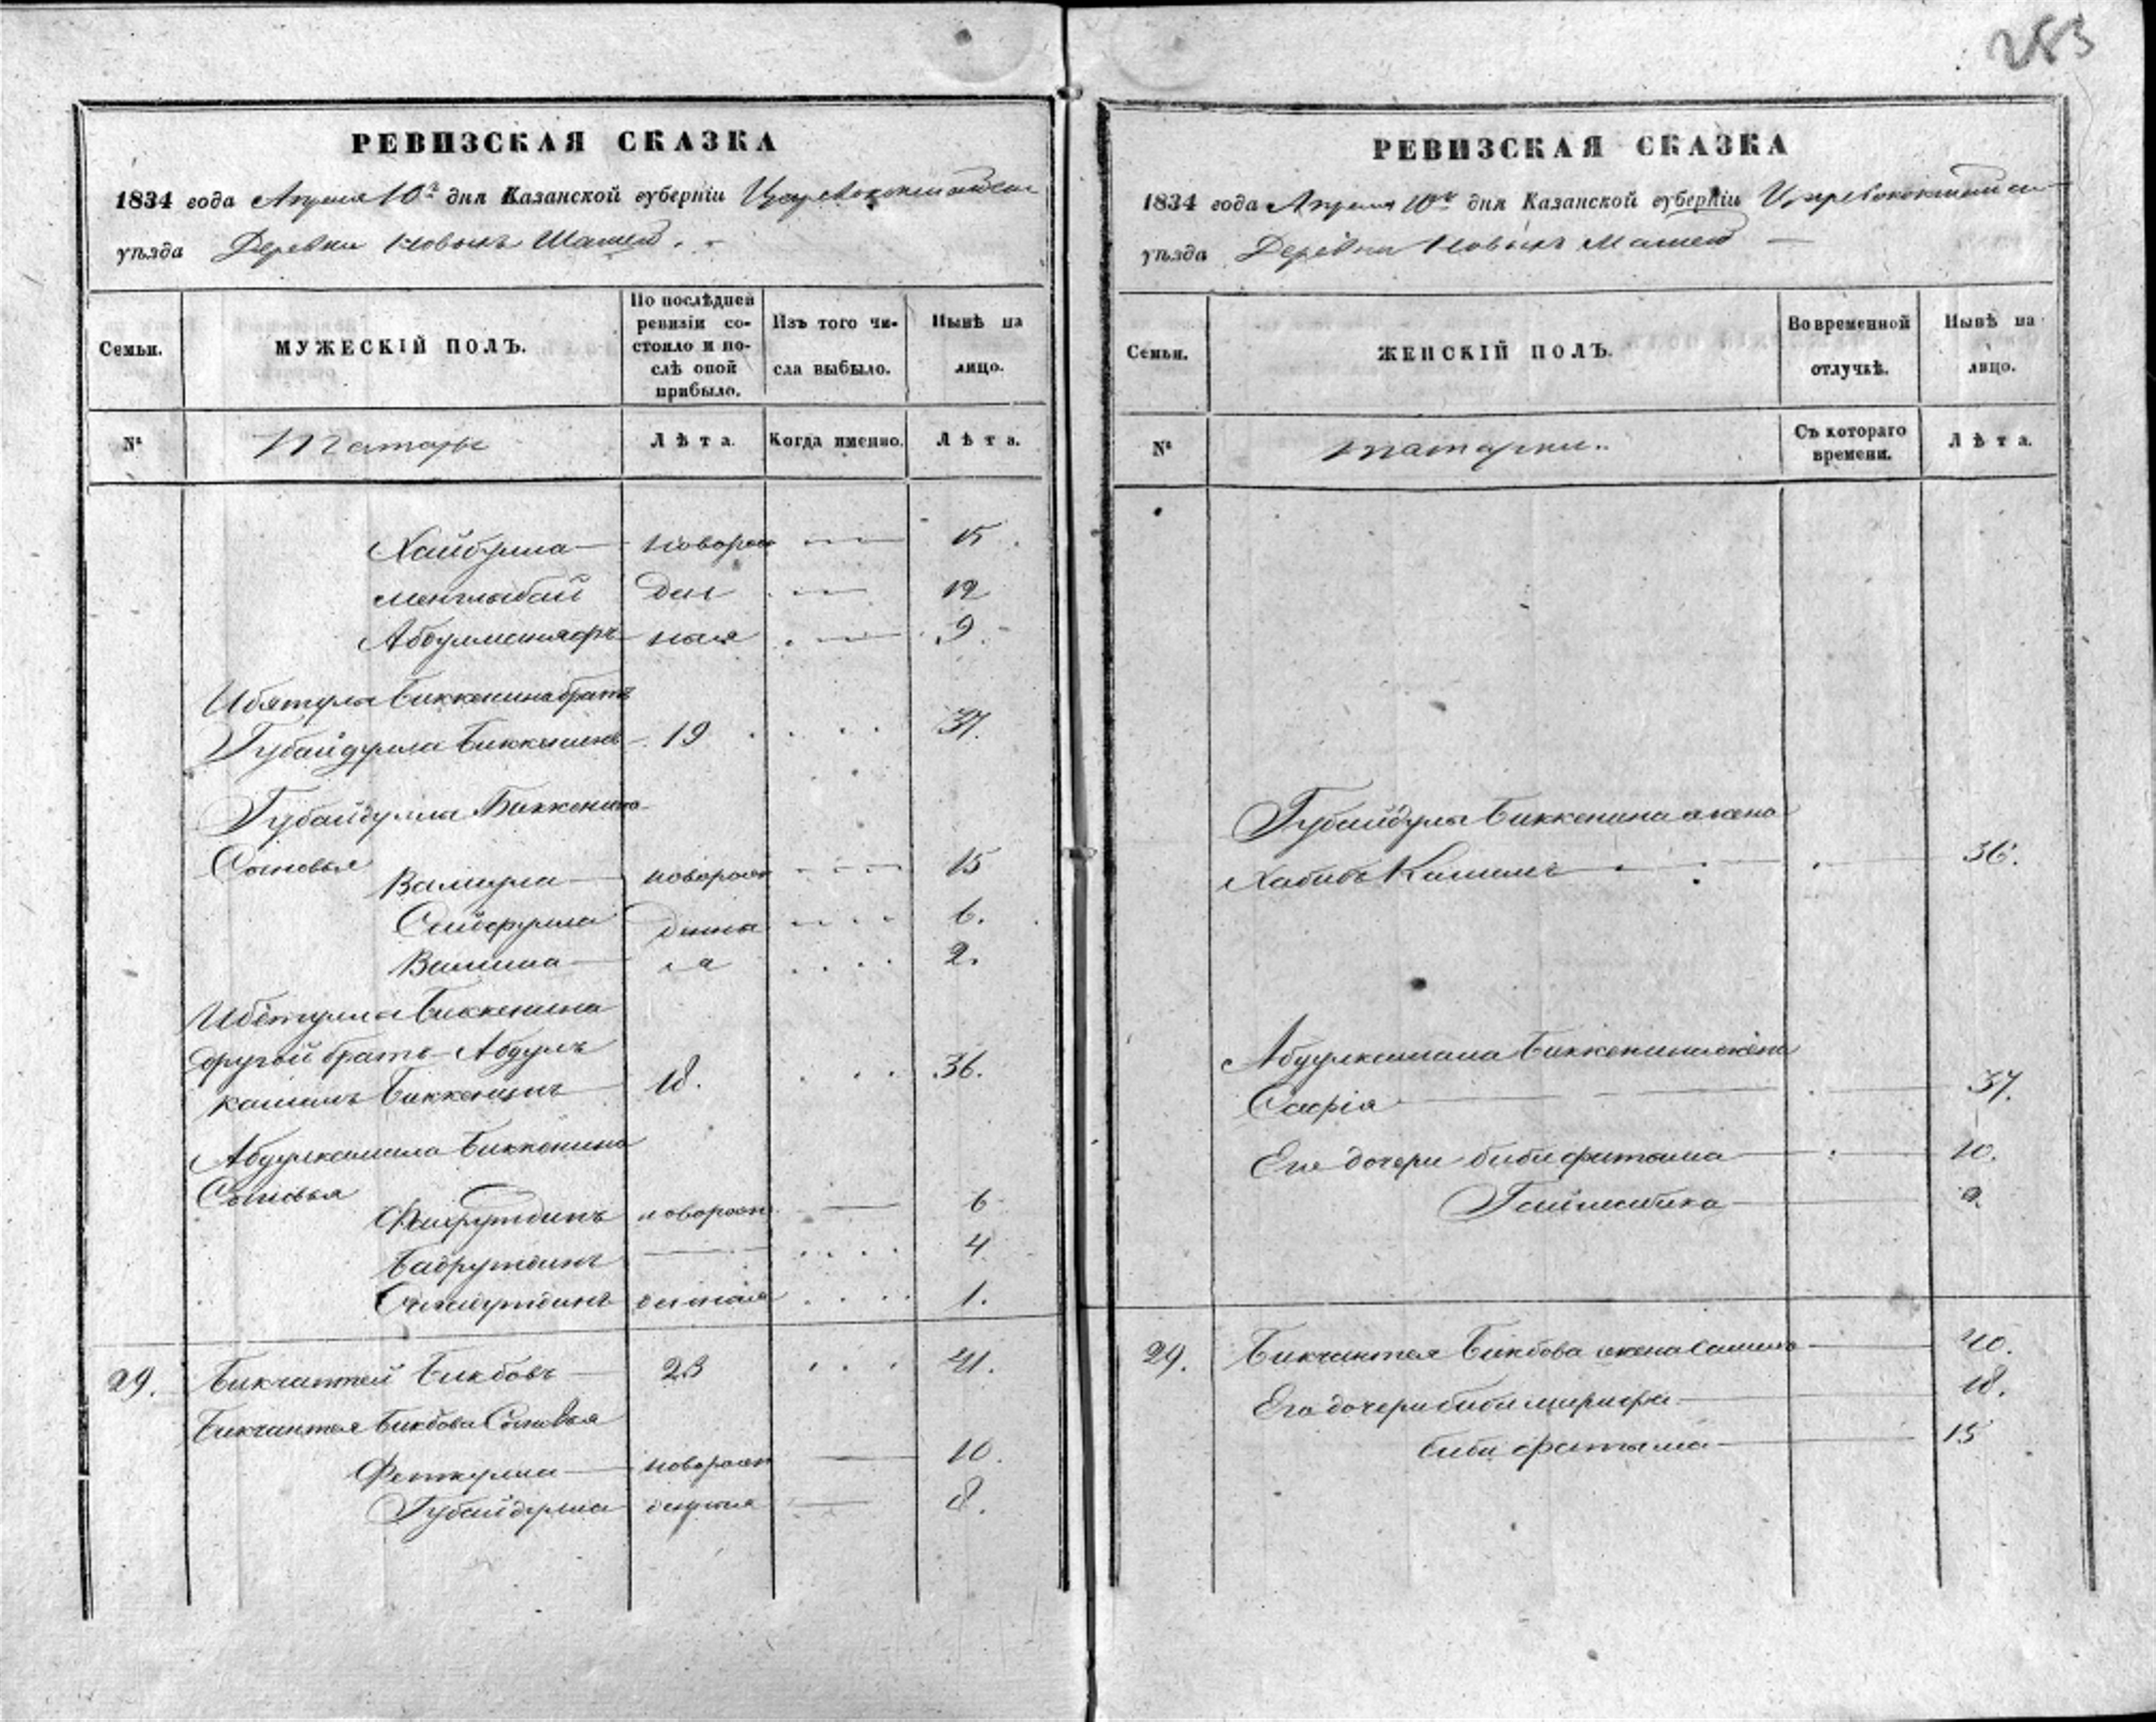 283
РЕВИЗСКАЯ СКАЗКА
1834 года Апреля 10го дня Казанской губерніи Царевококшайскаго
уѣзда Деревни Новыхъ Машей
Семьи.
МУЖЕСКІЙ ПОЛЪ.
По послѣдней ревизіи состояло и послѣ оной прибыло.
Изъ того числа выбыло.
Нынѣ на лицо.
№
Татары
Лѣта.
Когда именно.
Лѣта.
Хайбулла новорож 15
Менглыбай ден 12
Абдулменяфъ ныя 9.
Ибятуллы Биккенина братъ
Губайдулла Биккенинъ 19 37.
Губайдуллы Биккенина
Сыновья
Валиулла новорож 15
Сайфулла денна 6.
2.
Ибетуллы Биккенина
другой братъ Абдулъ
каримъ Биккенинъ 18. 36.
Биккенина
Сыновья
Фахрутдинъ новорож 6
Бадрутдинъ 4
денная 1.
29. Бикчантей Бикбовъ 23 41.
Бикчантея Бикбова Сыновья
Феткулла новорож 10.
Губайдулла 8.
РЕВИЗСКАЯ СКАЗКА
1834 года Апреля 10го дня Казанской губерніи Царевококшайск
уѣзда Деревни Новыхъ Машей
Семьи.
ЖЕНСКІЙ ПОЛЪ.
Во временной отлучкѣ.
Нынѣ на лицо.
№
татарки
Съ котораго времени.
Лѣта.
Губайдуллы Биккенина жена
Хабиба 36.
Биккенина жена
Сафія 37.
Ея дочери биби фатыма 10.
29. Бикчантея Бикбова жена 40.
Его дочери биби 18.
биби фатыма 15